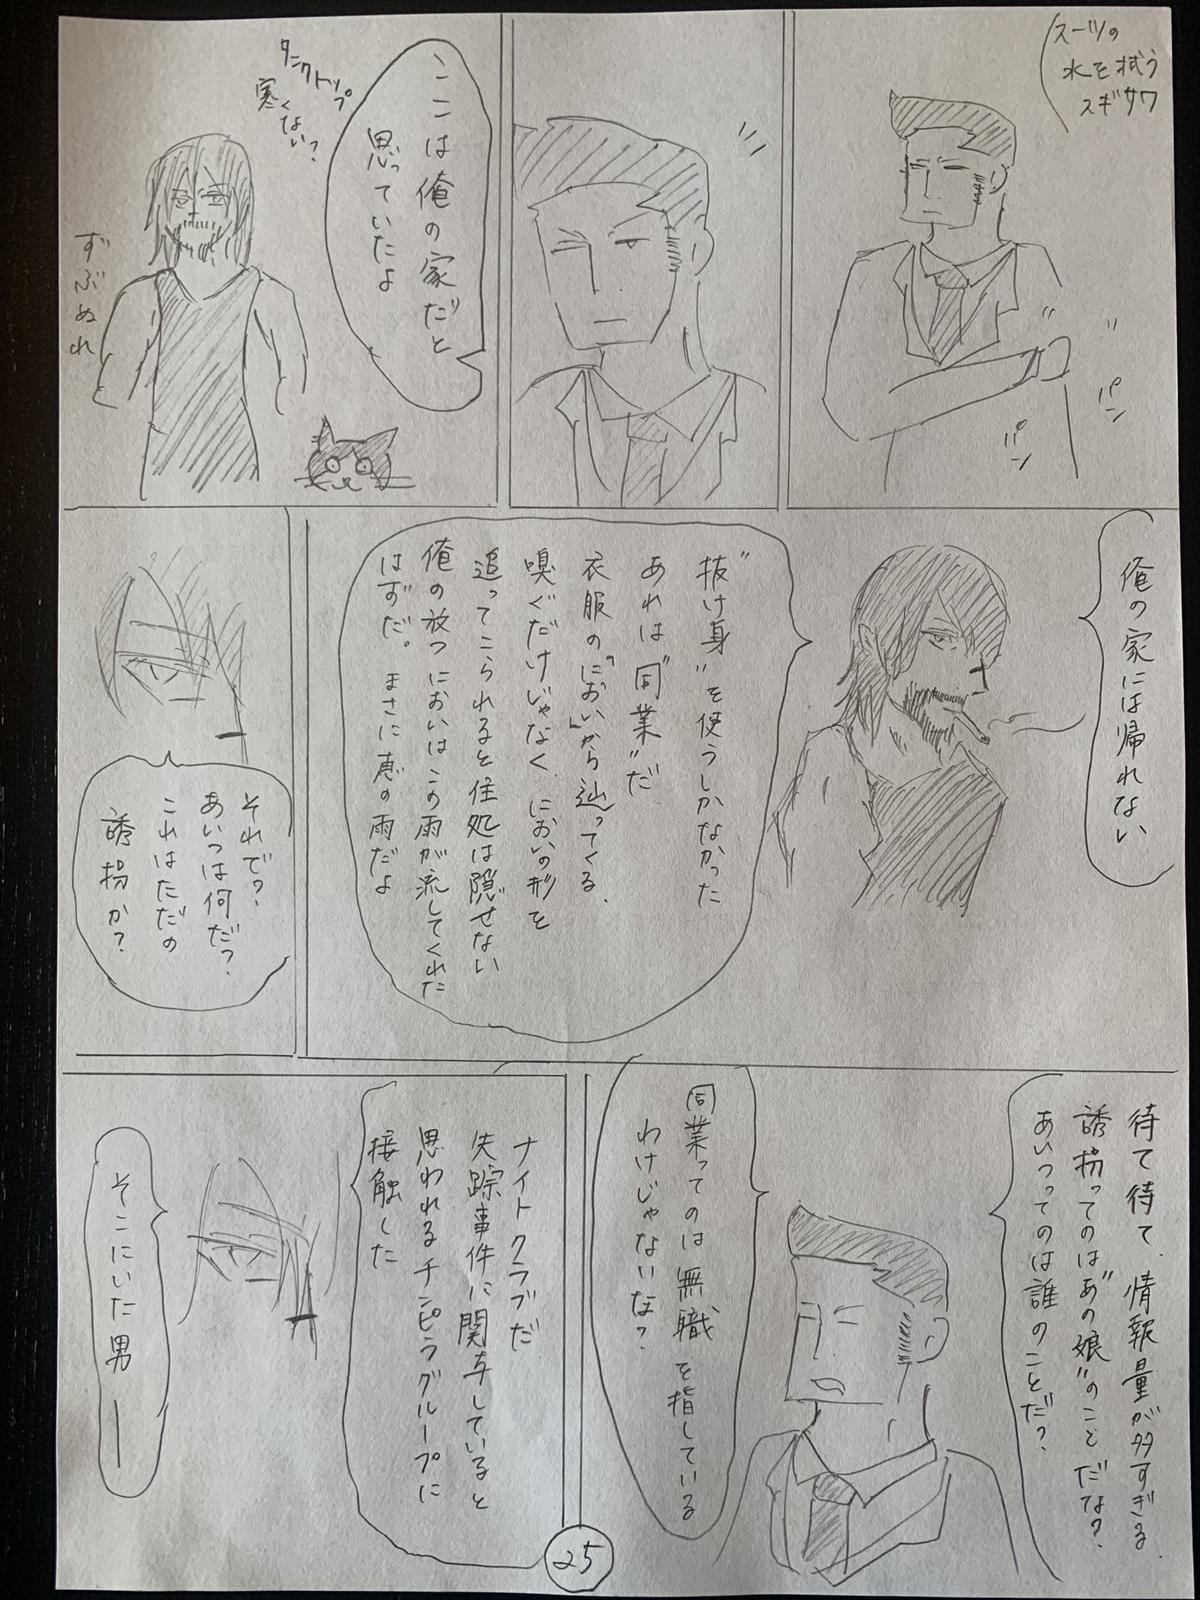 スーツの
水を拭う
スギサワ
パン
パン
ここは俺の家だと
思っていたよ
タンクトップ
寒くない?
ずぶぬれ
俺の家には帰れない
"抜け身"を使うしかなかった
あれは"同業"だ
衣服の「におい」から辿ってくる、
嗅ぐだけじゃなく、においの形を
追ってこられると住処は隠せない
俺の放つにおいはこの雨が流してくれた
はずだ。まさに恵の雨だよ
それで?
あいつは何だ?
これはただの
誘拐か?
待て待て、情報量が多すぎる、
誘拐ってのは"あの娘"のことだな?
あいつってのは誰のことだ?
同業ってのは無職を指している
わけじゃないな?
ナイトクラブだ
失踪事件に関与していると
思われるチンピラグループに
接触した
そこにいた男――
25